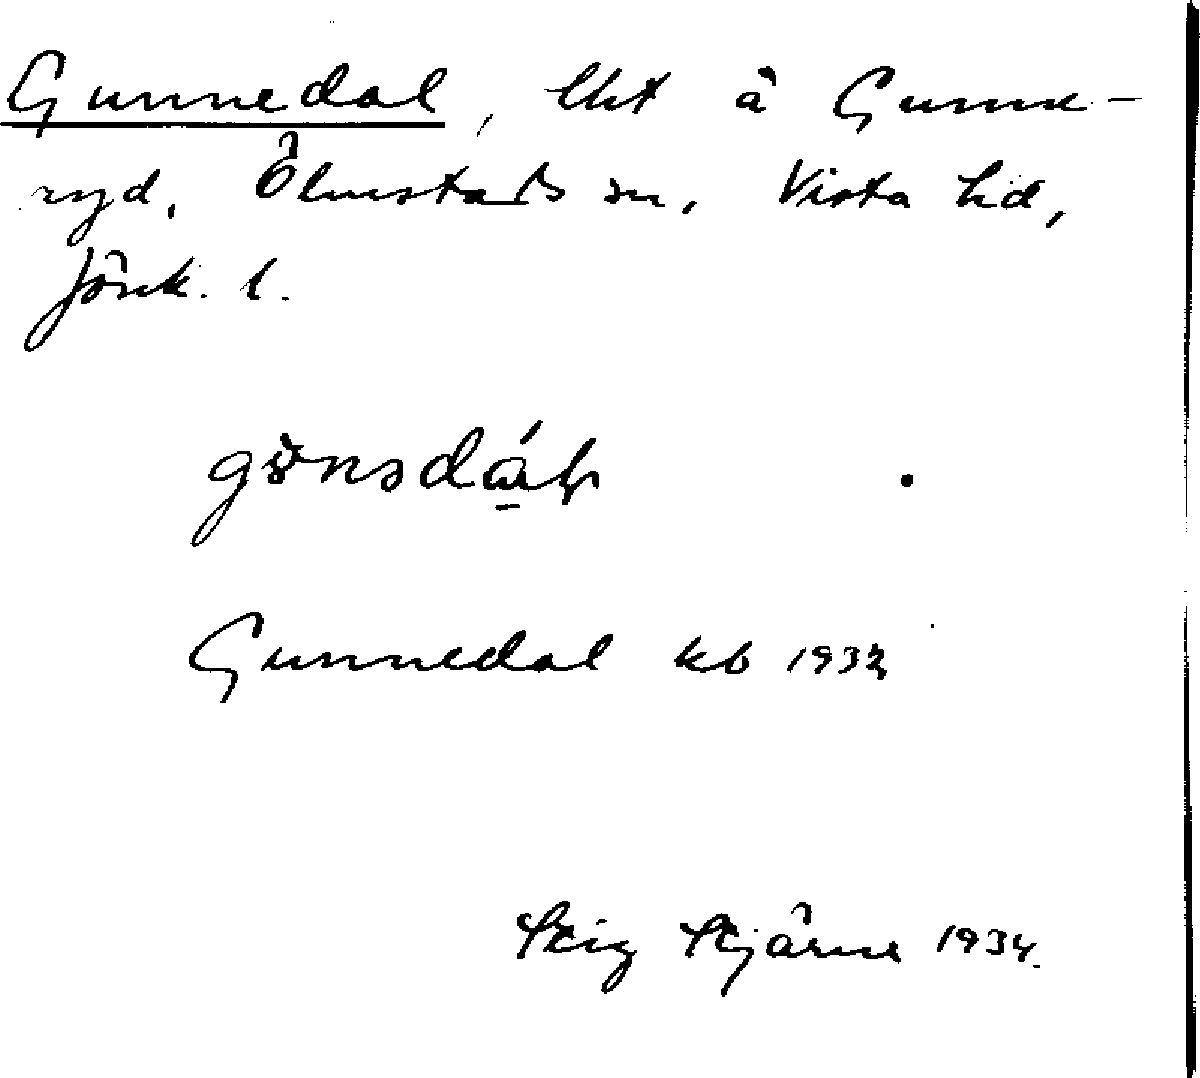 Gunnedal, lht å Gunne-
ryd, Ölmstads sn, Vista hd,
Jönk. l.
Gunnedal kb 1932
Stig Stjärne 1934.